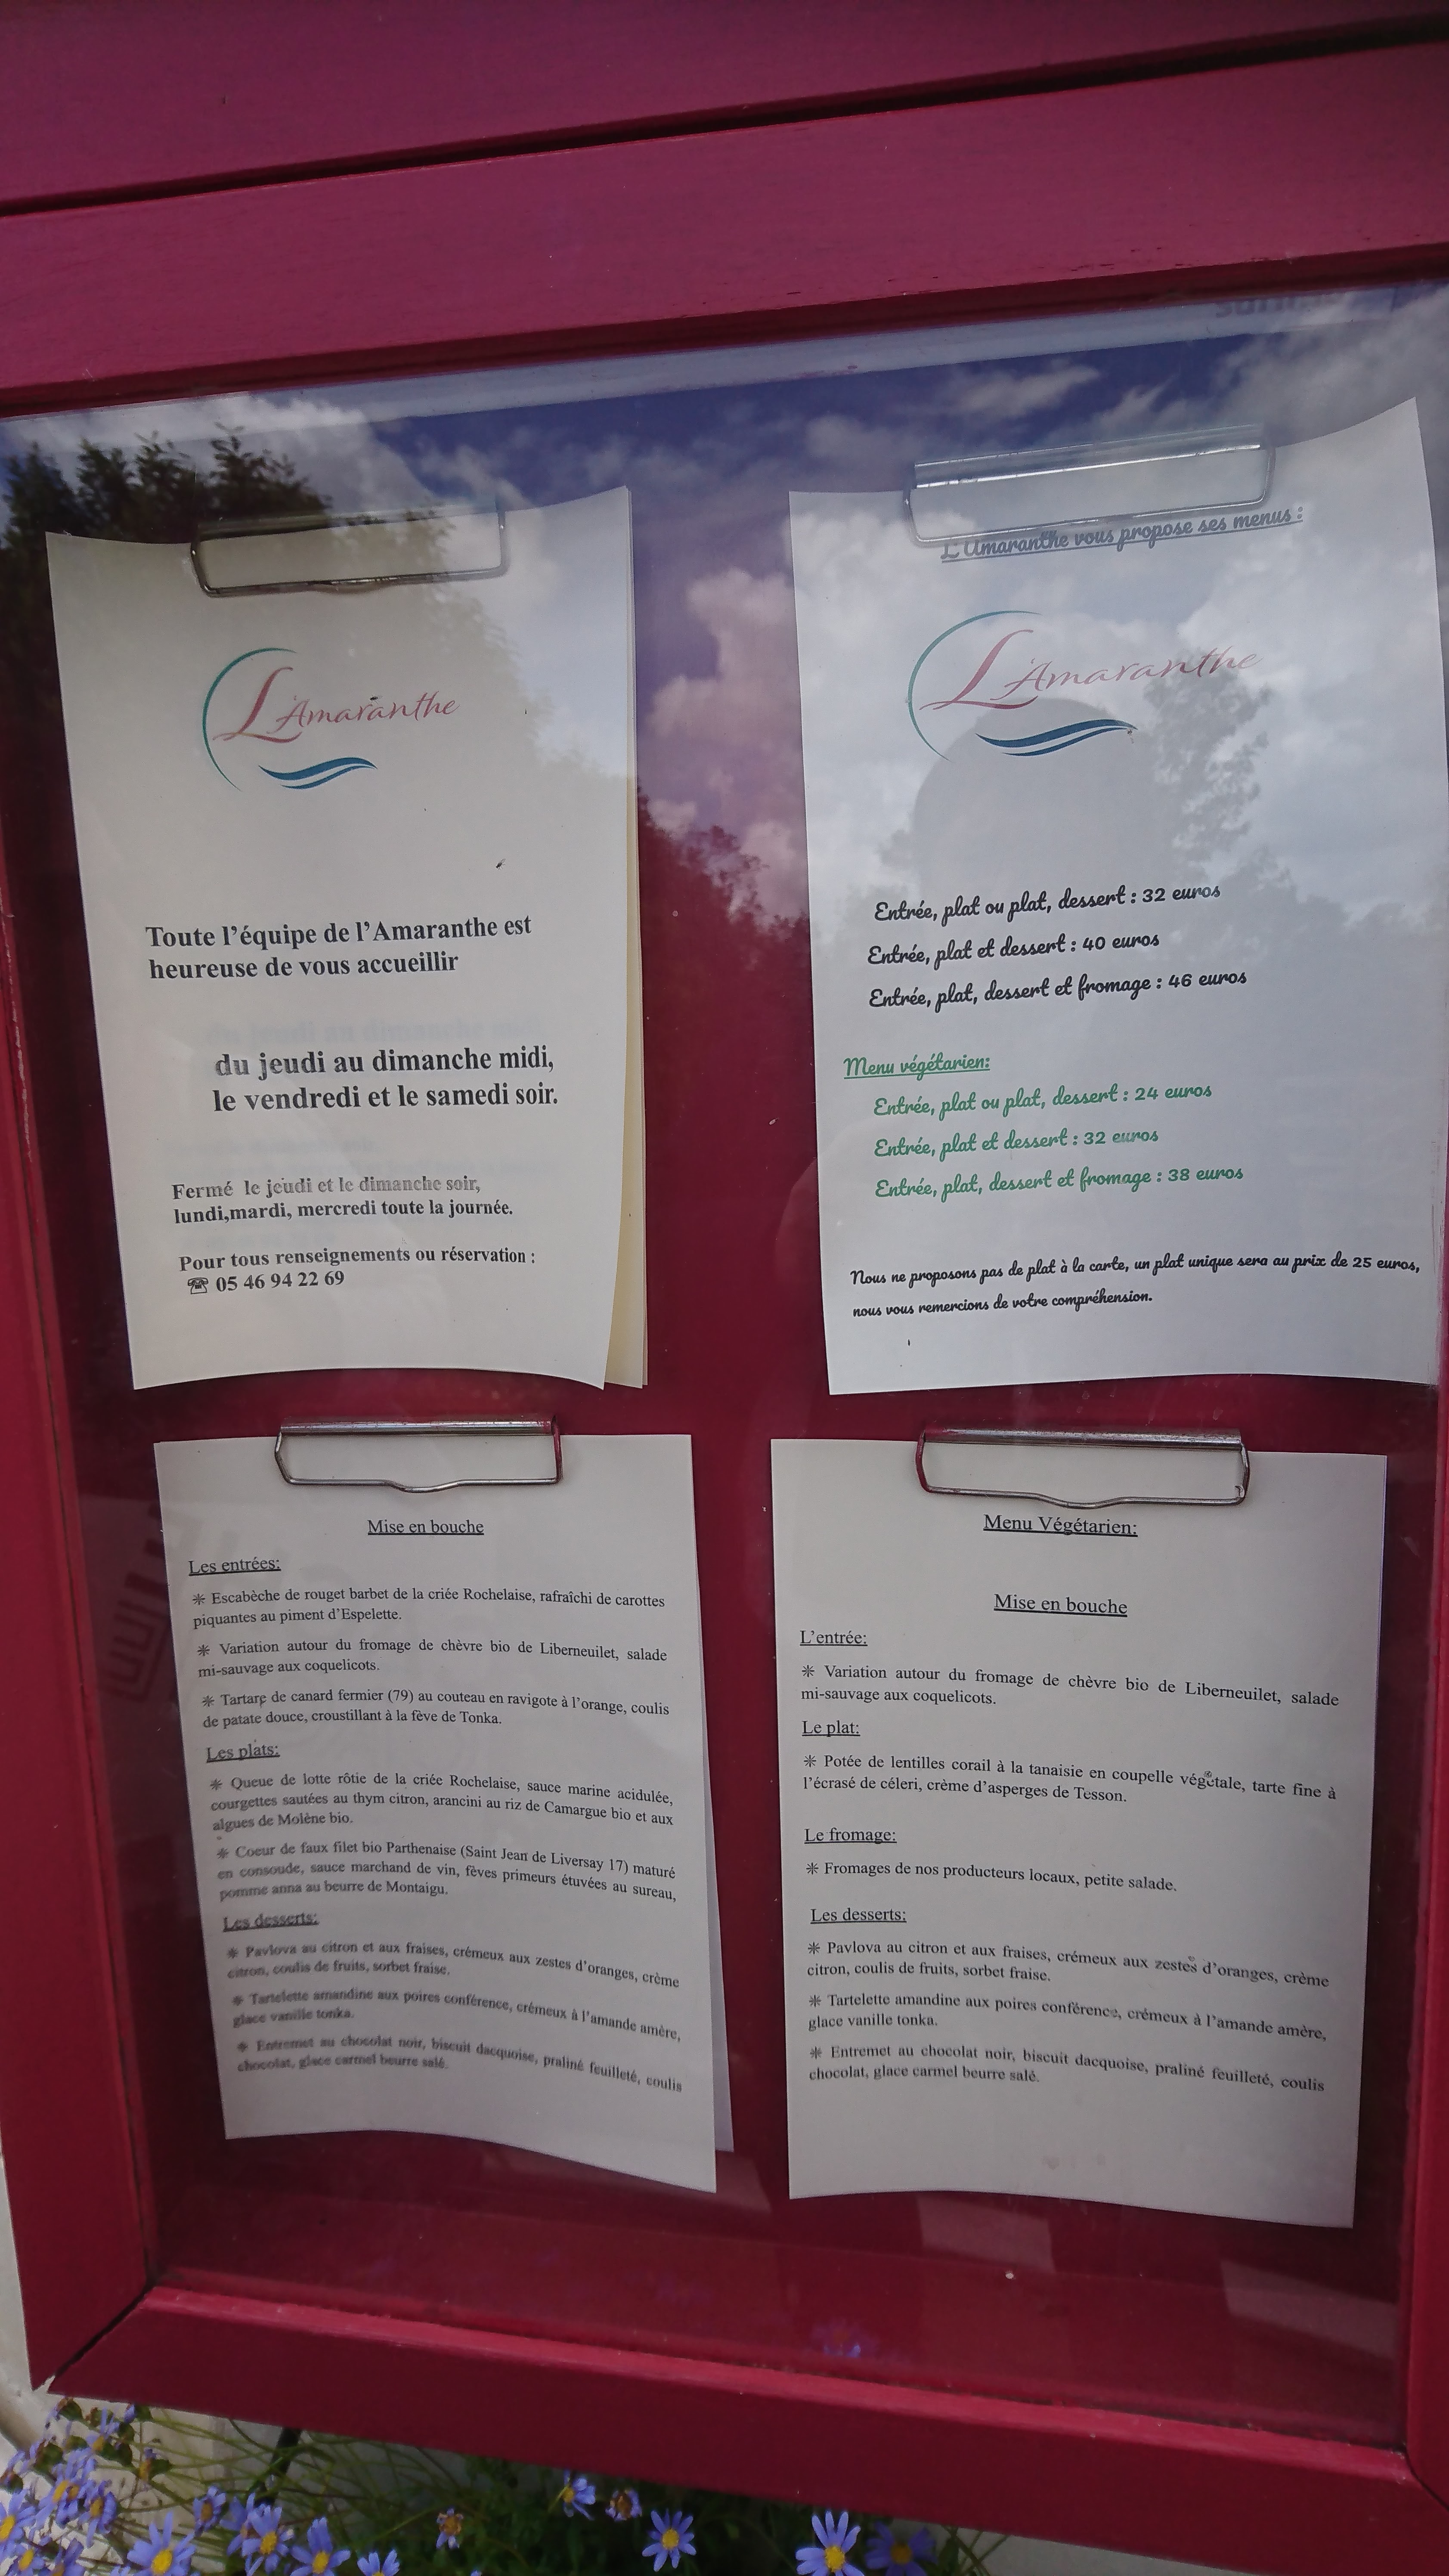 L'Amaranthe
Toute l'équipe de l'Amaranthe est
heureuse de vous accueillir
du jeudi au dimanche midi,
le vendredi et le samedi soir.
Fermé le jeudi et le dimanche soir,
lundi,mardi, mercredi toute la journée.
Pour tous renseignements ou réservation :
☎ 05 46 94 22 69
L'Amaranthe vous propose ses menus :
L'Amaranthe
Entrée, plat ou plat, dessert : 32 euros
Entrée, plat et dessert : 40 euros
Entrée, plat, dessert et fromage : 46 euros
Menu végétarien:
Entrée, plat ou plat, dessert : 24 euros
Entrée, plat et dessert : 32 euros
Entrée, plat, dessert et fromage : 38 euros
Nous ne proposons pas de plat à la carte, un plat unique sera au prix de 25 euros,
nous vous remercions de votre compréhension.
Mise en bouche
Les entrées:
✳ Escabèche de rouget barbet de la criée Rochelaise, rafraîchi de carottes
piquantes au piment d'Espelette.
✳ Variation autour du fromage de chèvre bio de Liberneuilet, salade
mi-sauvage aux coquelicots.
✳ Tartare de canard fermier (79) au couteau en ravigote à l'orange, coulis
de patate douce, croustillant à la fève de Tonka.
Les plats:
✳ Queue de lotte rôtie de la criée Rochelaise, sauce marine acidulée,
courgettes sautées au thym citron, arancini au riz de Camargue bio et aux
algues de Molène bio.
✳ Coeur de faux filet bio Parthenaise (Saint Jean de Liversay 17) maturé
en consoude, sauce marchand de vin, fèves primeurs étuvées au sureau,
pomme anna au beurre de Montaigu.
Les desserts:
✳ Pavlova au citron et aux fraises, crémeux aux zestes d'oranges, crème
citron, coulis de fruits, sorbet fraise.
✳ Tartelette amandine aux poires conférence, crémeux à l'amande amère,
glace vanille tonka.
✳ Entremet au chocolat noir, biscuit dacquoise, praliné feuilleté, coulis
chocolat, glace carmel beurre salé.
Menu Végétarien:
Mise en bouche
L'entrée:
✳ Variation autour du fromage de chèvre bio de Liberneuilet, salade
mi-sauvage aux coquelicots.
Le plat:
✳ Potée de lentilles corail à la tanaisie en coupelle végétale, tarte fine à
l'écrasé de céleri, crème d'asperges de Tesson.
Le fromage:
✳ Fromages de nos producteurs locaux, petite salade.
Les desserts:
✳ Pavlova au citron et aux fraises, crémeux aux zestes d'oranges, crème
citron, coulis de fruits, sorbet fraise.
✳ Tartelette amandine aux poires conférence, crémeux à l'amande amère,
glace vanille tonka.
✳ Entremet au chocolat noir, biscuit dacquoise, praliné feuilleté, coulis
chocolat, glace carmel beurre salé.